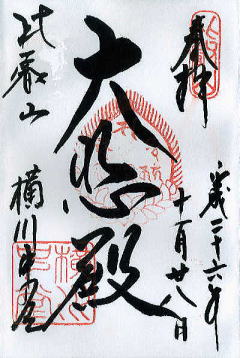 奉拝
平成二十六年
十一月廿八日
大悲殿
比叡山
横川中堂